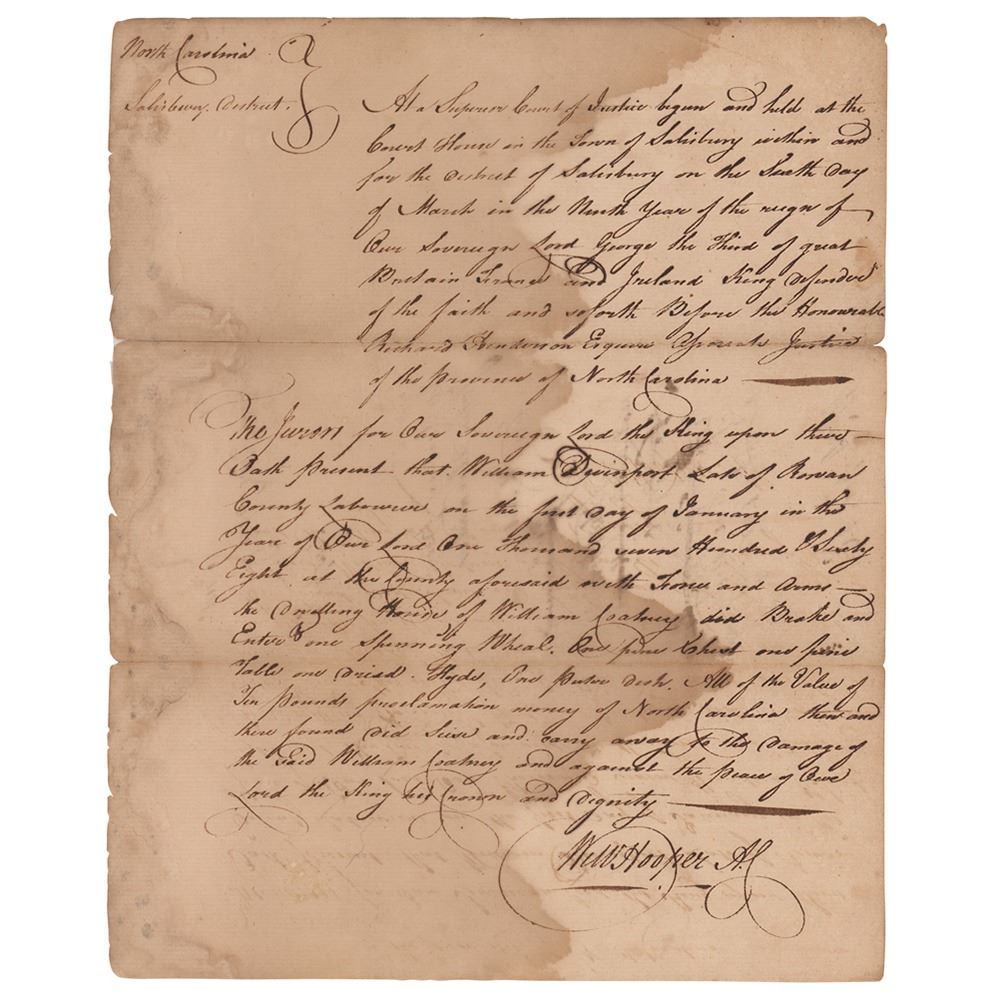 North Carolina
Salisbury District.
At a Superior Court of Justice begun and held at the
Court House in the Town of Salisbury within and
for the District of Salisbury on the Sixth Day
of March in the Ninth Year of the reign of
Our Sovereign Lord George the Third of great
Britain France and Ireland King Defender
of the faith and soforth Before the Honourable
Richard Henderson Esquire Justice
of the province of North Carolina
The Jurors for Our Sovereign Lord the King upon their
Oath present that William Davinport Late of Rowan
County Labourer on the first Day of January in the
Year of Our Lord One Thousand seven Hundred & Sixty
Eight at the County aforesaid with Force and Arms
the Dwelling House of William Coatney did Brake and
Enter & one Spinning Wheal, One pine Chest one pine
Table one Dried Hyde, One Puter dish. All of the Value of
Ten pounds proclamation money of North Carolina then and
there found did Seize and carry away to the Damage of
the Said William Coatney and against the peace of Our
Lord the King his Crown and Dignity
Will Hooper